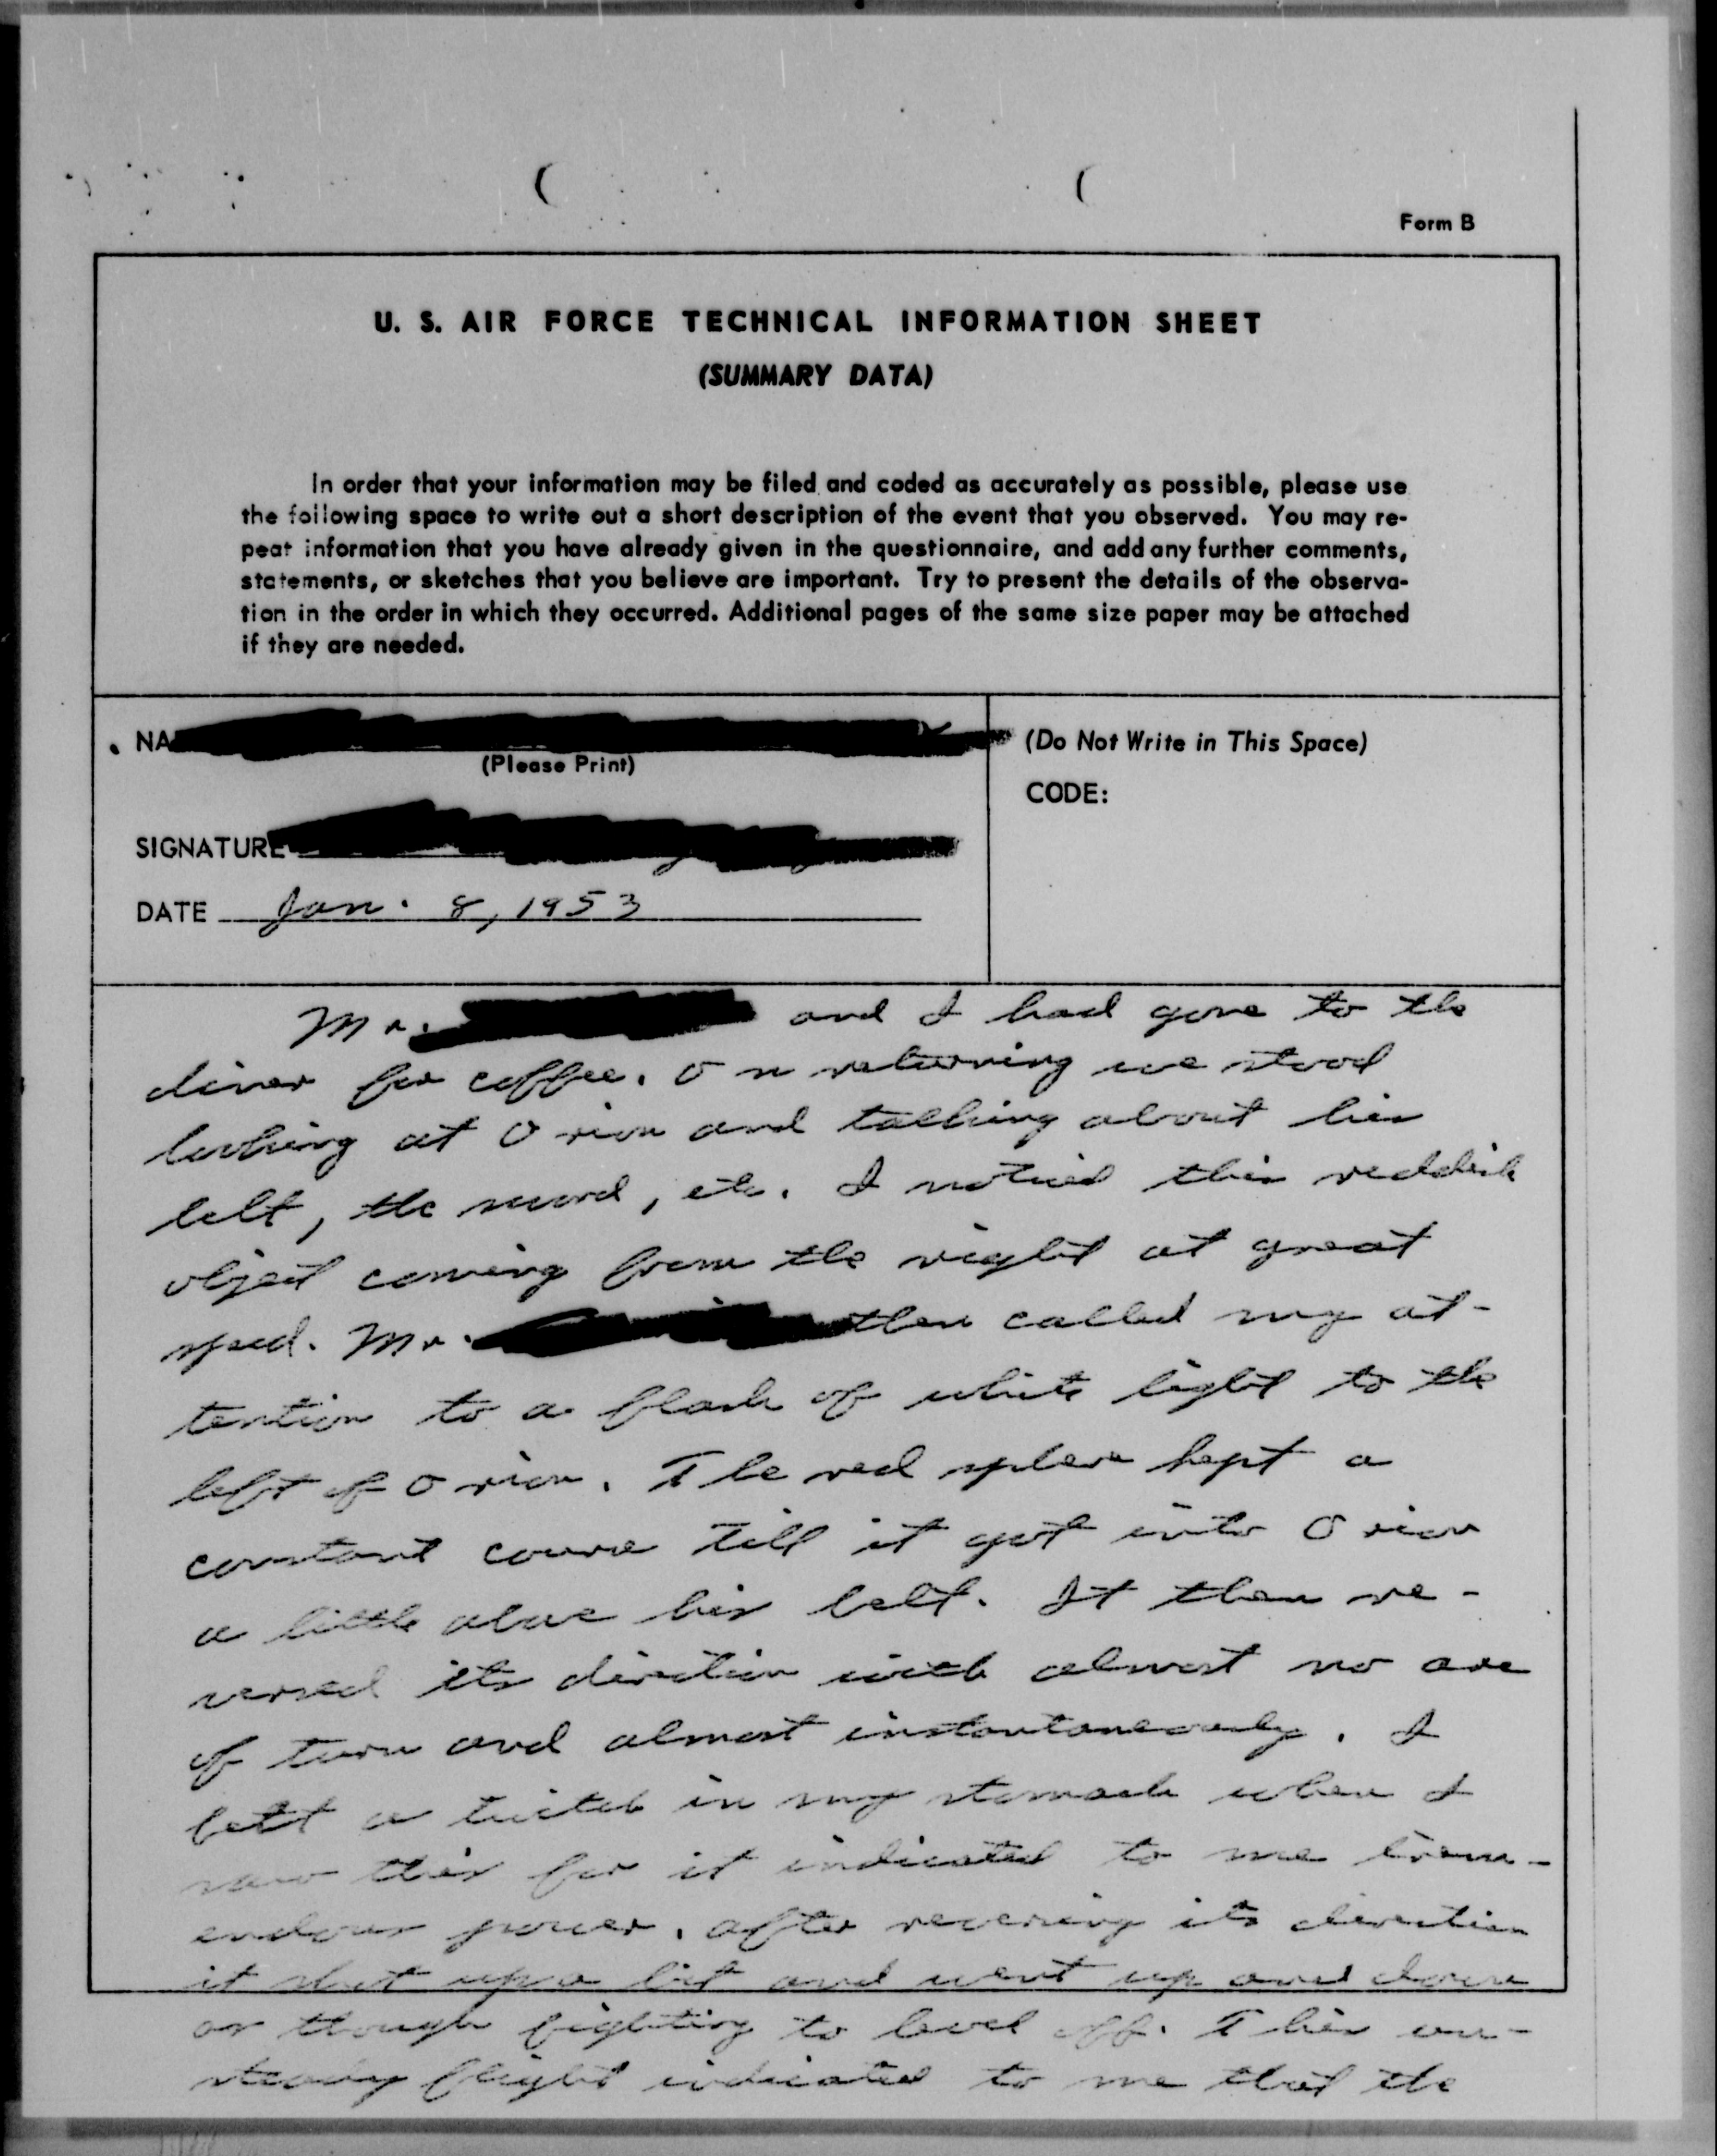 Form B
U. S. AIR FORCE TECHNICAL INFORMATION SHEET
(SUMMARY DATA)
In order that your information may be filed and coded as accurately as possible, please use
the following space to write out a short description of the event that you observed. You may re-
peat information that you have already given in the questionnaire, and add any further comments,
statements, or sketches that you believe are important. Try to present the details of the observa-
tion in the order in which they occurred. Additional pages of the same size paper may be attached
if they are needed.
NA
(Please Print)
(Do Not Write in This Space)
CODE:
SIGNATURE
DATE Jan. 8, 1953
Mr. and I had gone to the
diner for coffee. On returning we stood
looking at Orion and talking about his
belt, the sword, etc. I noticed this reddish
object coming from the right at great
speed. Mr. then called my at-
tention to a flash of white light to the
left of Orion. The red sphere kept a
constant course till it got into Orion
a little above his belt. It then re-
versed its direction with almost no arc
of turn and almost instantaneously. I
felt a twitch in my stomach when I
saw this for it indicated to me trem-
endous power. After reversing its direction
it shot up a bit and went up and down
as though fighting to level off. This un-
steady flight indicated to me that the